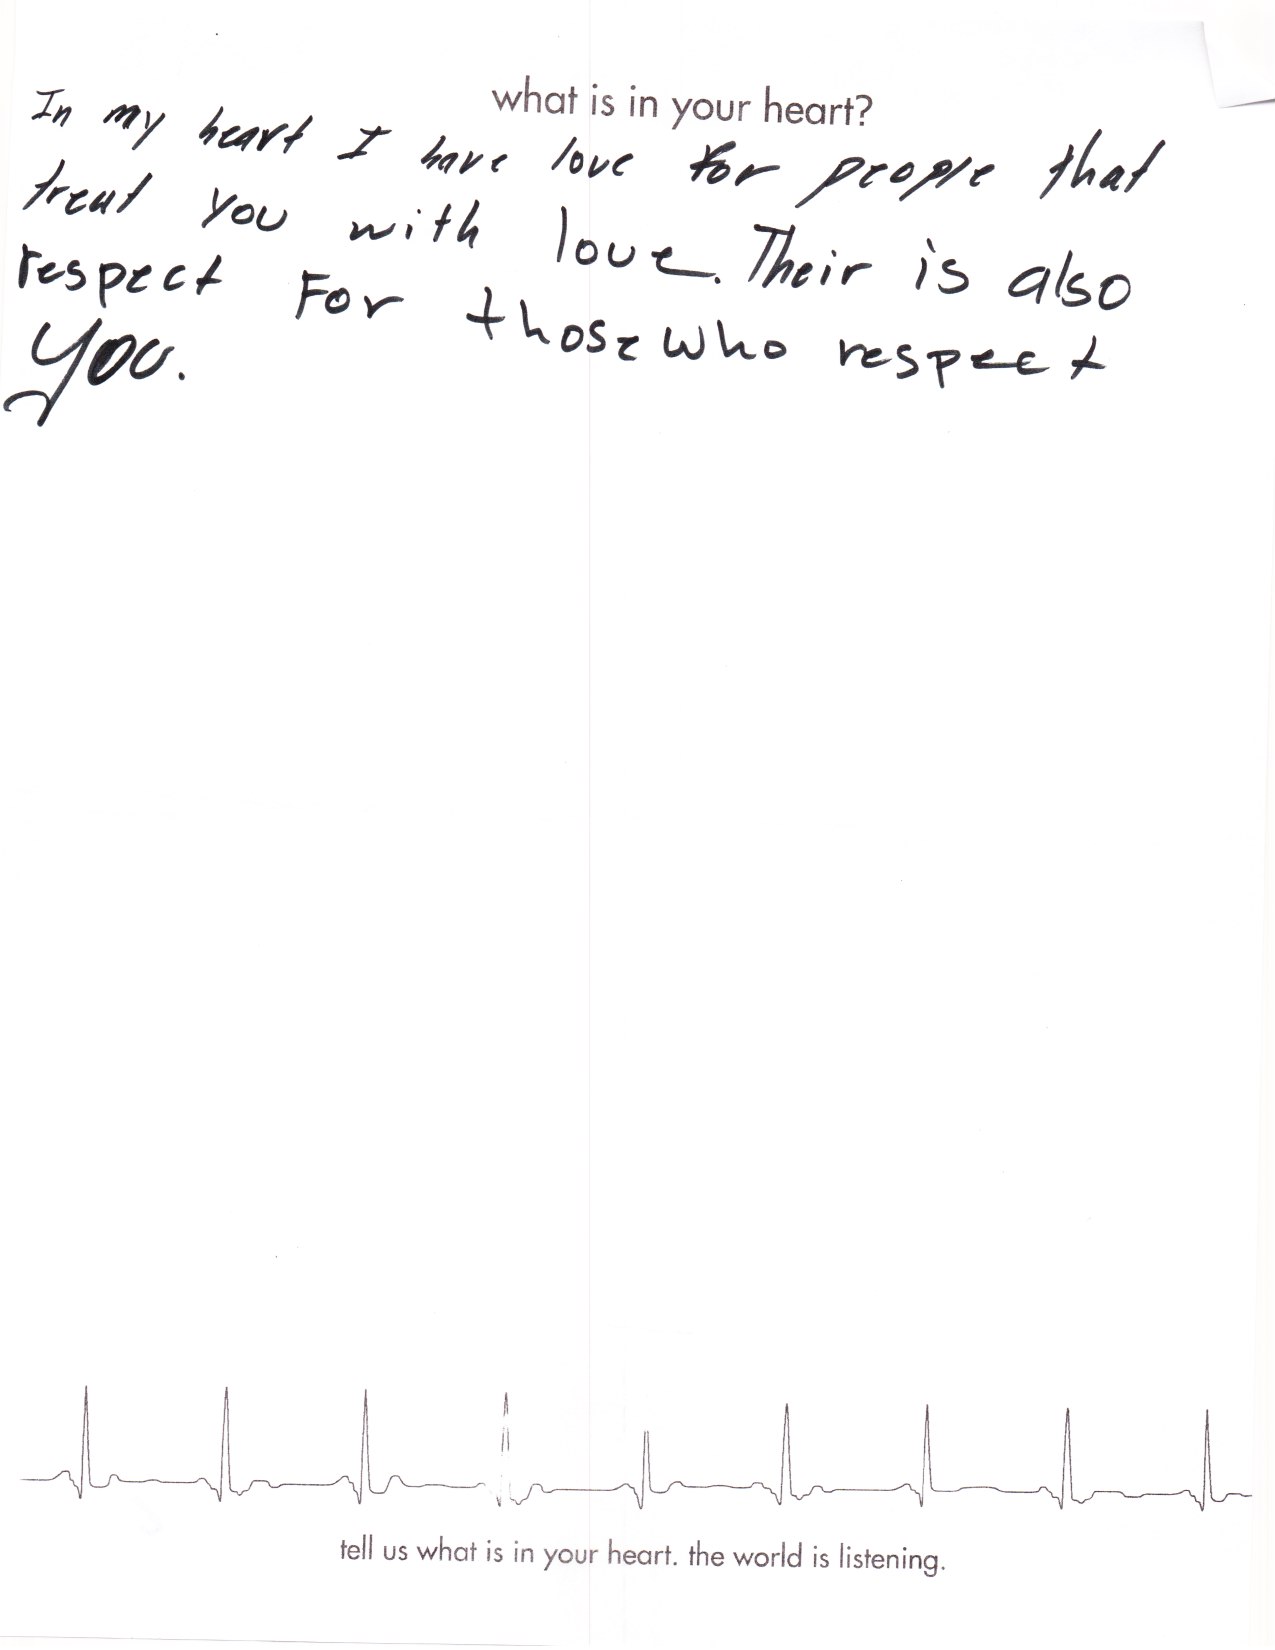 what is in your heart?
In my heart I have love for people that
treat you with love. Their is also
respect For those who respect
you.
tell us what is in your heart. the world is listening.